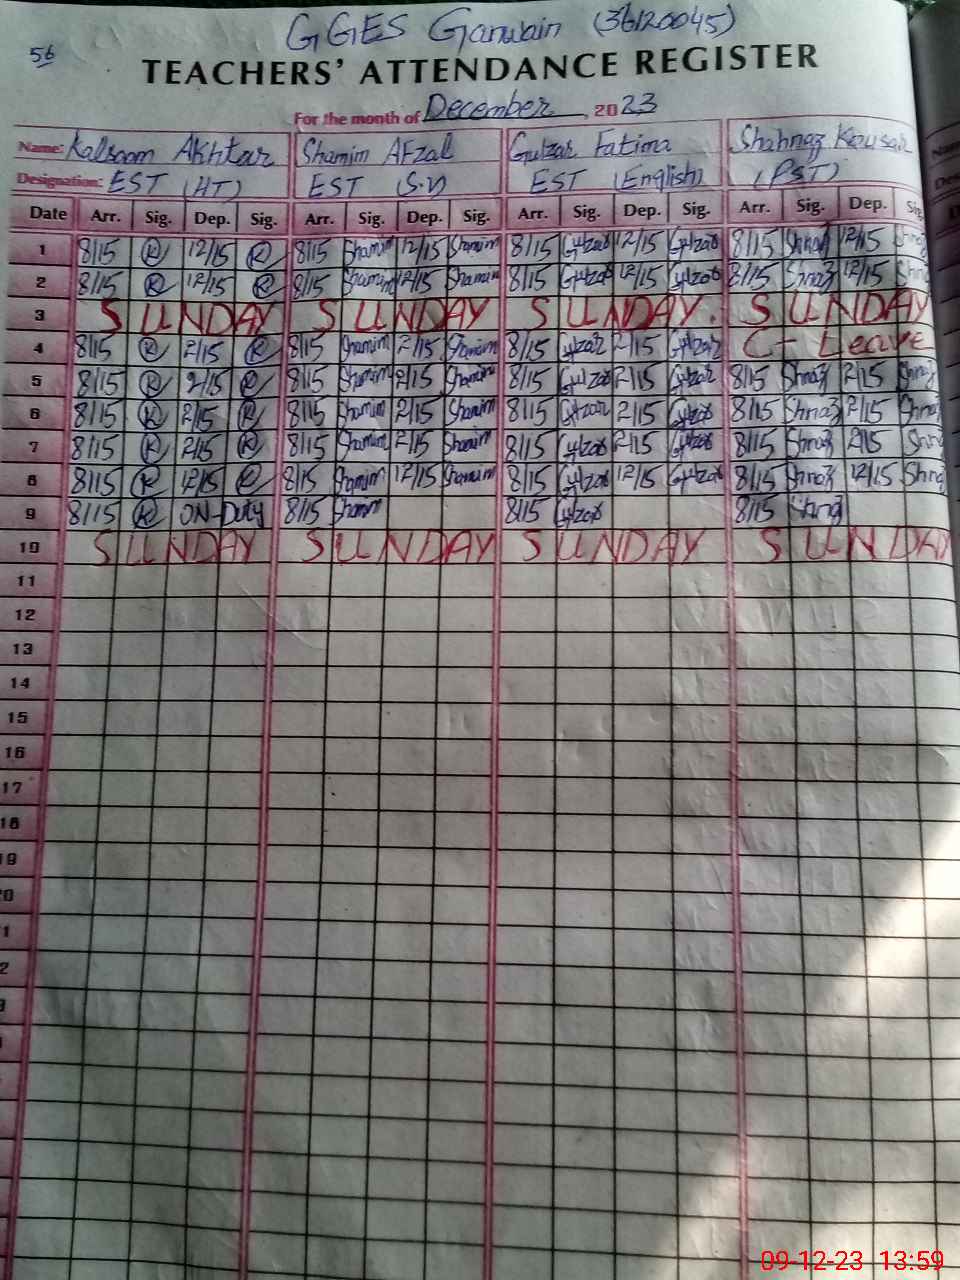 GGES Ganwain (36120045)
56
TEACHERS' ATTENDANCE REGISTER
For the month of December, 2023
Name: Kalsoom Akhtar Shamim Afzal Gulzar Fatima Shahnaz Kousar
Designation: EST (HT) EST (S.V) EST (English) (PST)
Date Arr. Sig. Dep. Sig. Arr. Sig. Dep. Sig. Arr. Sig. Dep. Sig. Arr. Sig. Dep. Sig
1 8/15 K 12/15 K 8/15 Shamim 12/15 Shamim 8/15 Gulzar 12/15 Gulzar 8/15 Shnaz 12/15 Shnaz
2 8/15 K 12/15 K 8/15 Shamim 12/15 Shamim 8/15 Gulzar 12/15 Gulzar 8/15 Shnaz 12/15 Shnaz
3 SUNDAY SUNDAY SUNDAY. SUNDAY
4 8/15 K 2/15 K 8/15 Shamim 2/15 Shamim 8/15 Gulzar 2/15 Gulzar C-Leave
5 8/15 K 2/15 K 8/15 Shamim 2/15 Shamim 8/15 Gulzar 2/15 Gulzar 8/15 Shnaz 2/15 Shnaz
6 8/15 K 2/15 K 8/15 Shamim 2/15 Shamim 8/15 Gulzar 2/15 Gulzar 8/15 Shnaz 2/15 Shnaz
7 8/15 K 2/15 K 8/15 Shamim 2/15 Shamim 8/15 Gulzar 2/15 Gulzar 8/15 Shnaz 2/15 Shnaz
8 8/15 K 12/15 K 8/15 Shamim 12/15 Shamim 8/15 Gulzar 12/15 Gulzar 8/15 Shnaz 12/15 Shnaz
9 8/15 K ON-Duty 8/15 Shamim 8/15 Gulzar 8/15 Shnaz
10 SUNDAY SUNDAY SUNDAY SUNDAY
11
12
13
14
15
16
17
18
19
20
1
2
09-12-23 13:59